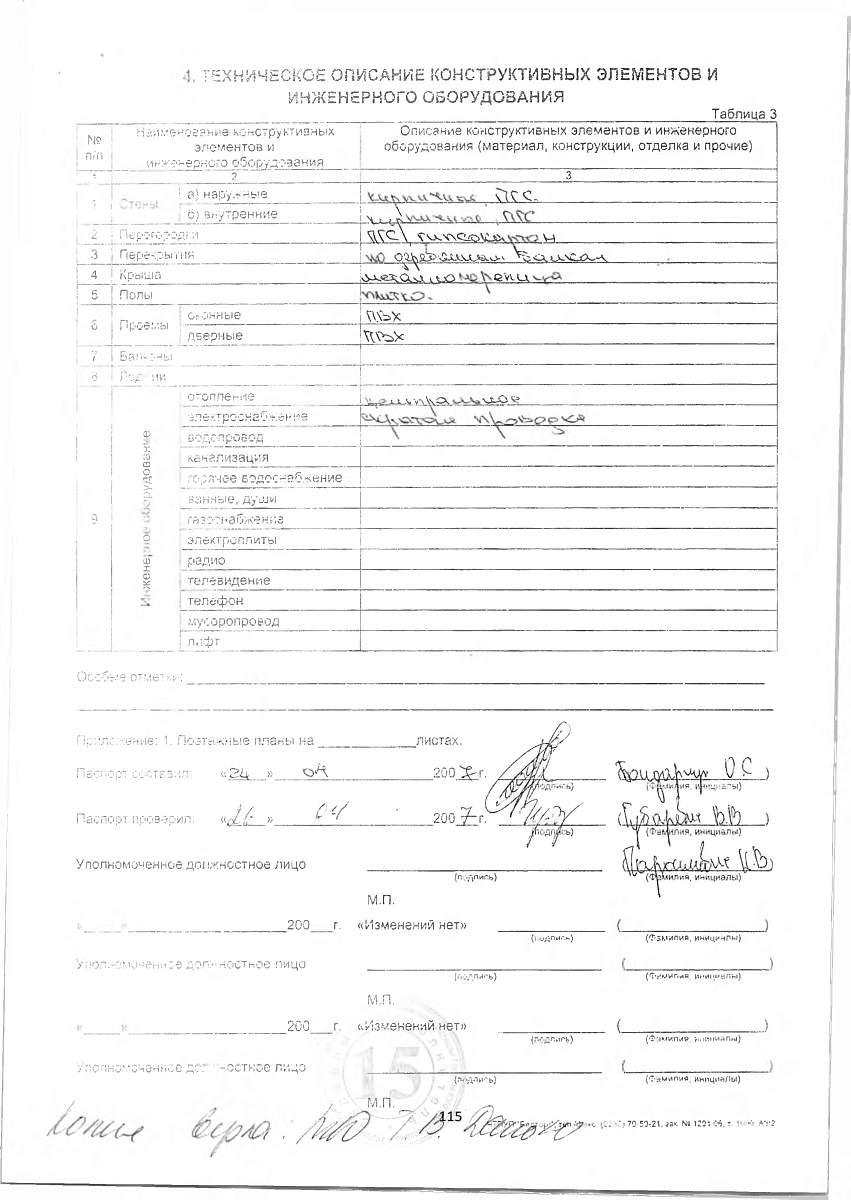 4. ТЕХНИЧЕСКОЕ ОПИСАНИЕ КОНСТРУКТИВНЫХ ЭЛЕМЕНТОВ И
ИНЖЕНЕРНОГО ОБОРУДОВАНИЯ
Таблица 3
№ п/п Наименование конструктивных элементов и инженерного оборудования Описание конструктивных элементов и инженерного оборудования (материал, конструкции, отделка и прочие)
1 2 3
1 Стены а) наружные кирпичные, ПГС
б) внутренние кирпичные, ПГС
2 Перегородки ПГС, гипсокартон
3 Перекрытия по деревянным балкам
4 Крыша металлочерепица
5 Полы плитка
6 Проемы оконные ПВХ
дверные ПВХ
7 Балконы
8 Лоджии
9 Инженерное оборудование отопление центральное
электроснабжение скрытая проводка
водопровод
канализация
горячее водоснабжение
ванные, души
газоснабжение
электроплиты
радио
телевидение
телефон
мусоропровод
лифт
Особые отметки:
Приложение: 1. Поэтажные планы на листах.
Паспорт составил: «24» 04 2007 г. (Бондарчук О.С)
(подпись) (Фамилия, инициалы)
Паспорт проверил: «26» 04 2007 г. (Губаревич В.В)
(подпись) (Фамилия, инициалы)
Уполномоченное должностное лицо
(подпись) (Фамилия, инициалы)
М.П.
« » 200 г. «Изменений нет» ( )
(подпись) (Фамилия, инициалы)
Уполномоченное должностное лицо ( )
(подпись) (Фамилия, инициалы)
М.П.
« » 200 г. «Изменений нет» ( )
(подпись) (Фамилия, инициалы)
Уполномоченное должностное лицо ( )
(подпись) (Фамилия, инициалы)
15
М.П.
115
Копия верна: